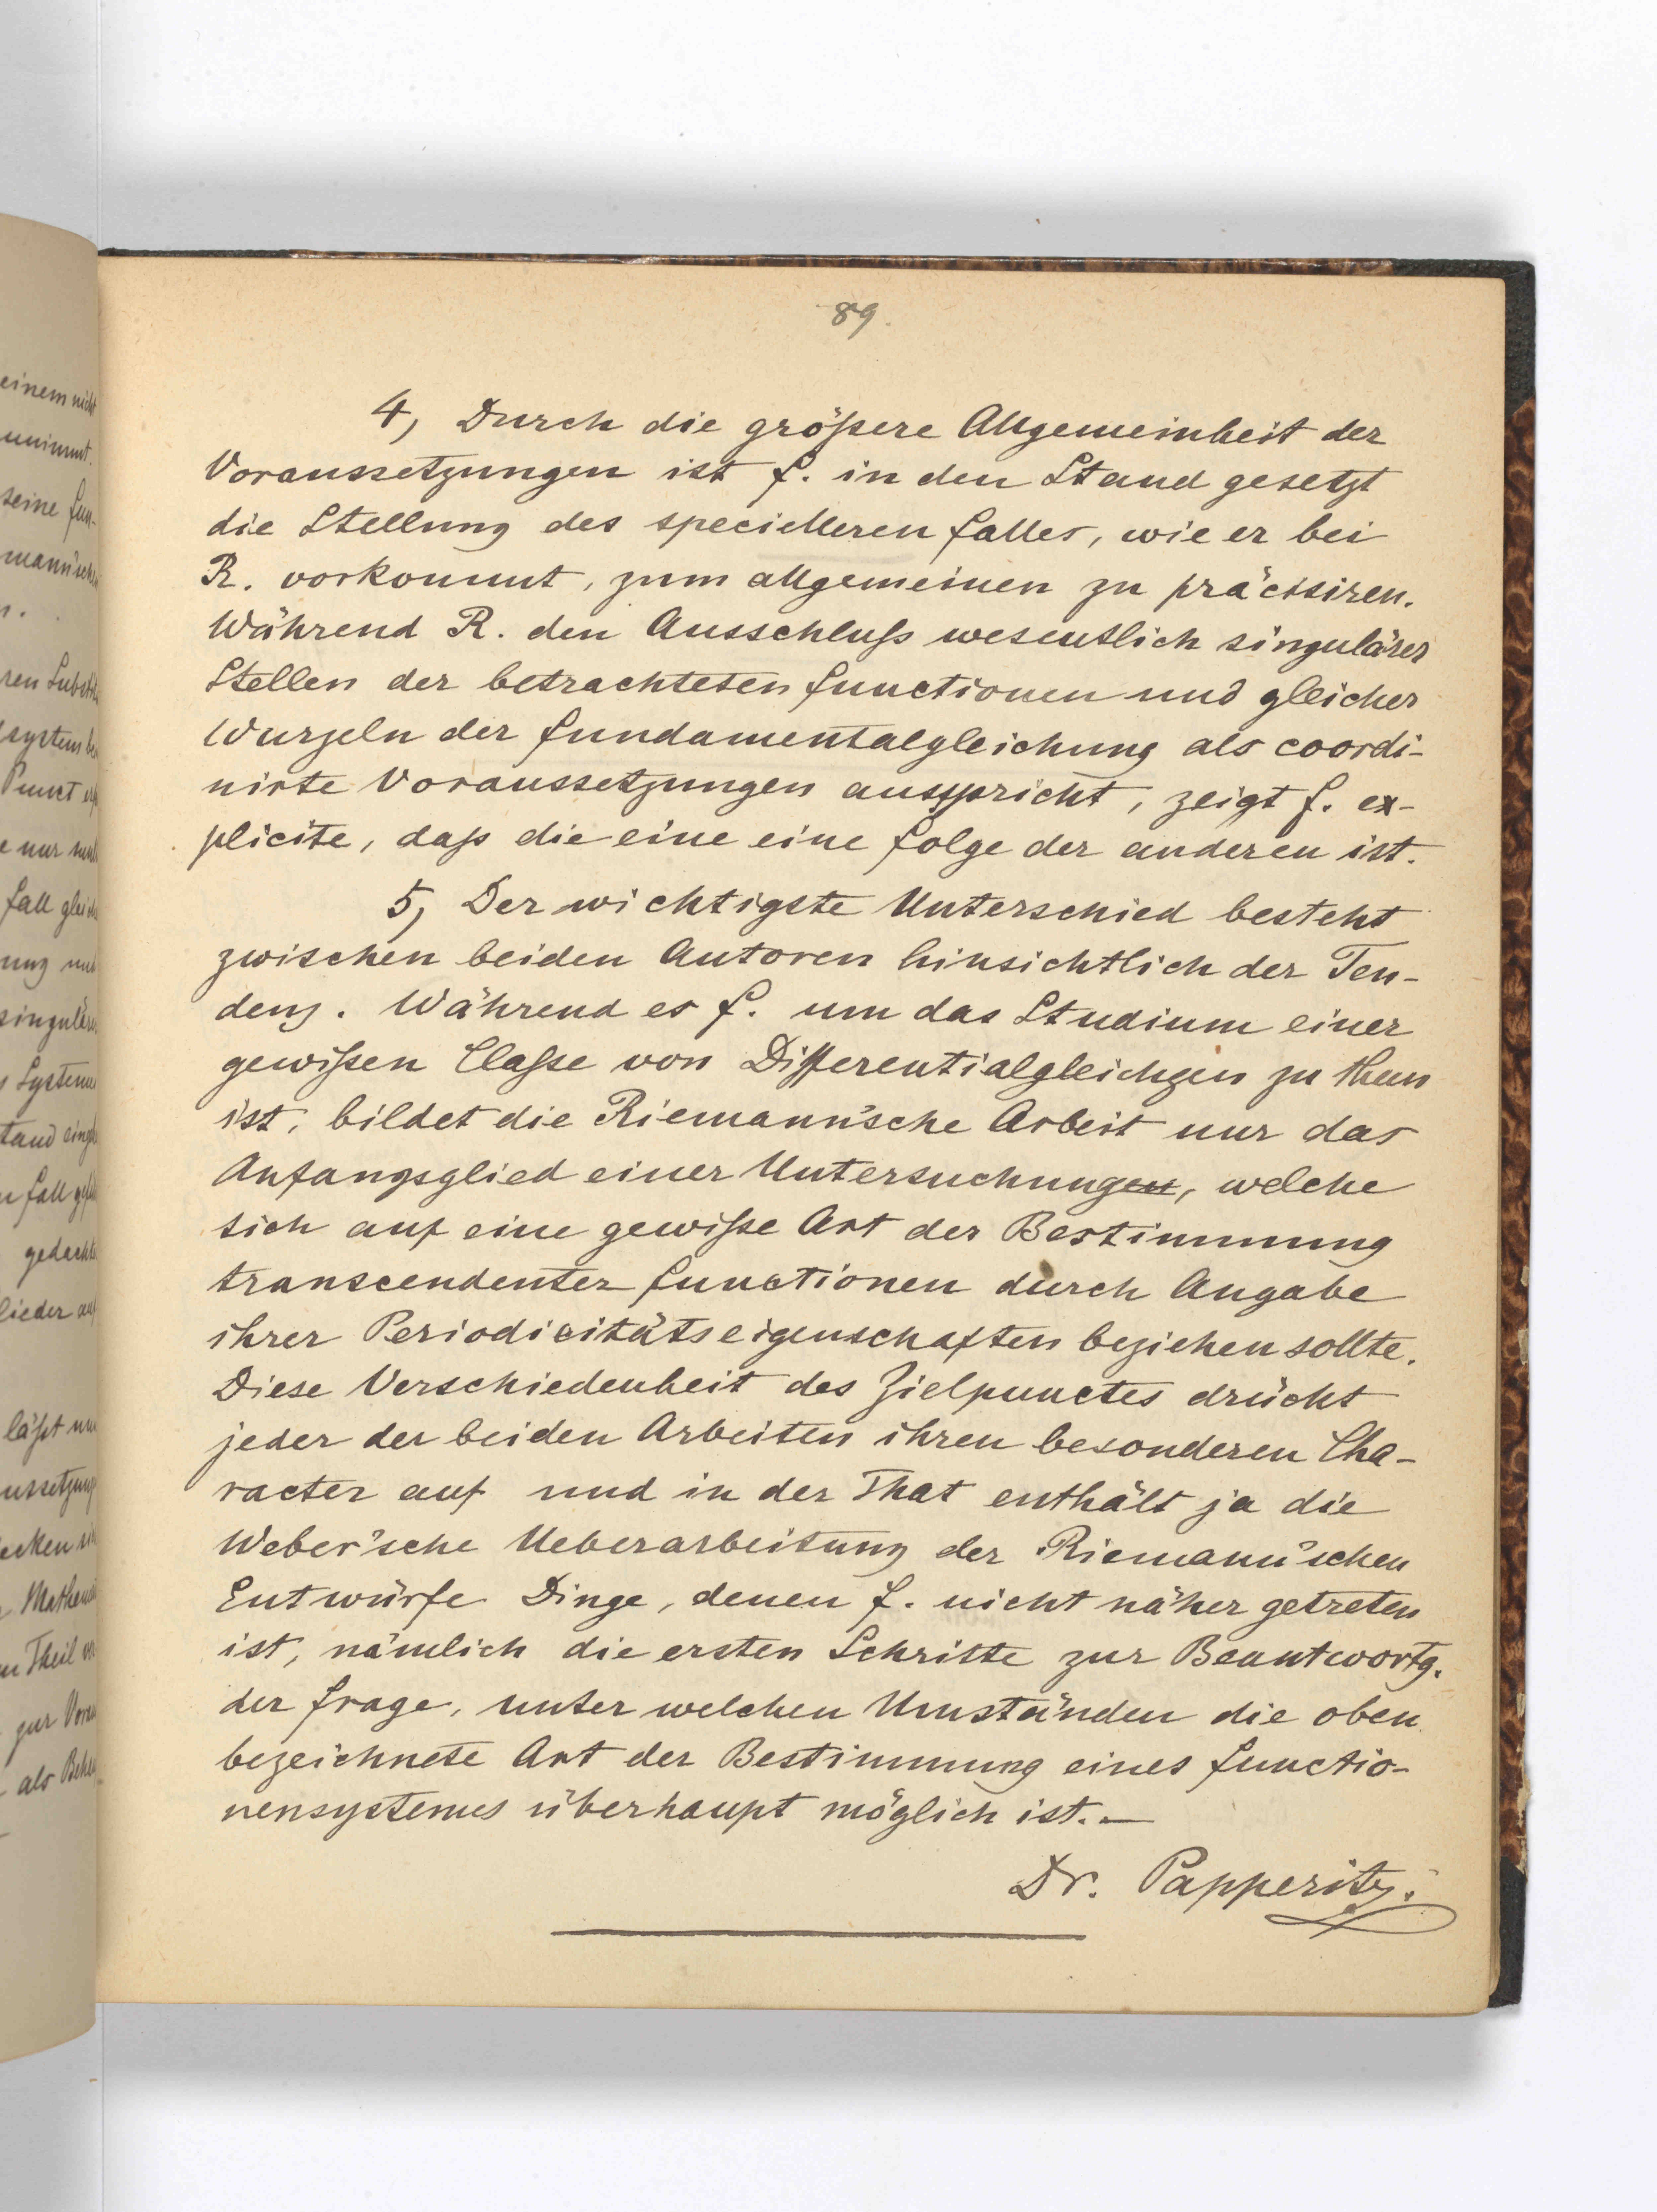 89.
4, Durch die größere Allgemeinheit der
Voraussetzungen ist F. in den Stand gesetzt
die Stellung des specielleren Falles, wie er bei
R. vorkommt, zum allgemeinen zu präcisiren.
Während R. den Ausschluß wesentlich singulärer
Stellen der betrachteten Functionen und gleicher
Wurzeln der Fundamentalgleichung als coordi-
nirte Voraussetzungen ausspricht, zeigt F. ex-
plicite, daß die eine eine Folge der anderen ist.
5, Der wichtigste Unterschied besteht
zwischen beiden Autoren hinsichtlich der Ten-
denz. Während es F. um das Studium einer
gewißen Claße von Differentialgleichgen zu thun
ist, bildet die Riemann'sche Arbeit nur das
Anfangsglied einer Untersuchungen, welche
sich auf eine gewiße Art der Bestimmung
transcendenter Functionen durch Angabe
ihrer Periodicitätseigenschaften beziehen sollte.
Diese Verschiedenheit des Zielpunctes drückt
jeder der beiden Arbeiten ihren besonderen Cha-
racter auf und in der That enthält ja die
Weber'sche Ueberarbeitung der Riemann'schen
Entwürfe Dinge, denen F. nicht näher getreten
ist, nämlich die ersten Schritte zur Beantwortg.
der Frage, unter welchen Umständen die oben
bezeichnete Art der Bestimmung eines Functio-
nensystemes überhaupt möglich ist. —
Dr. Papperitz.